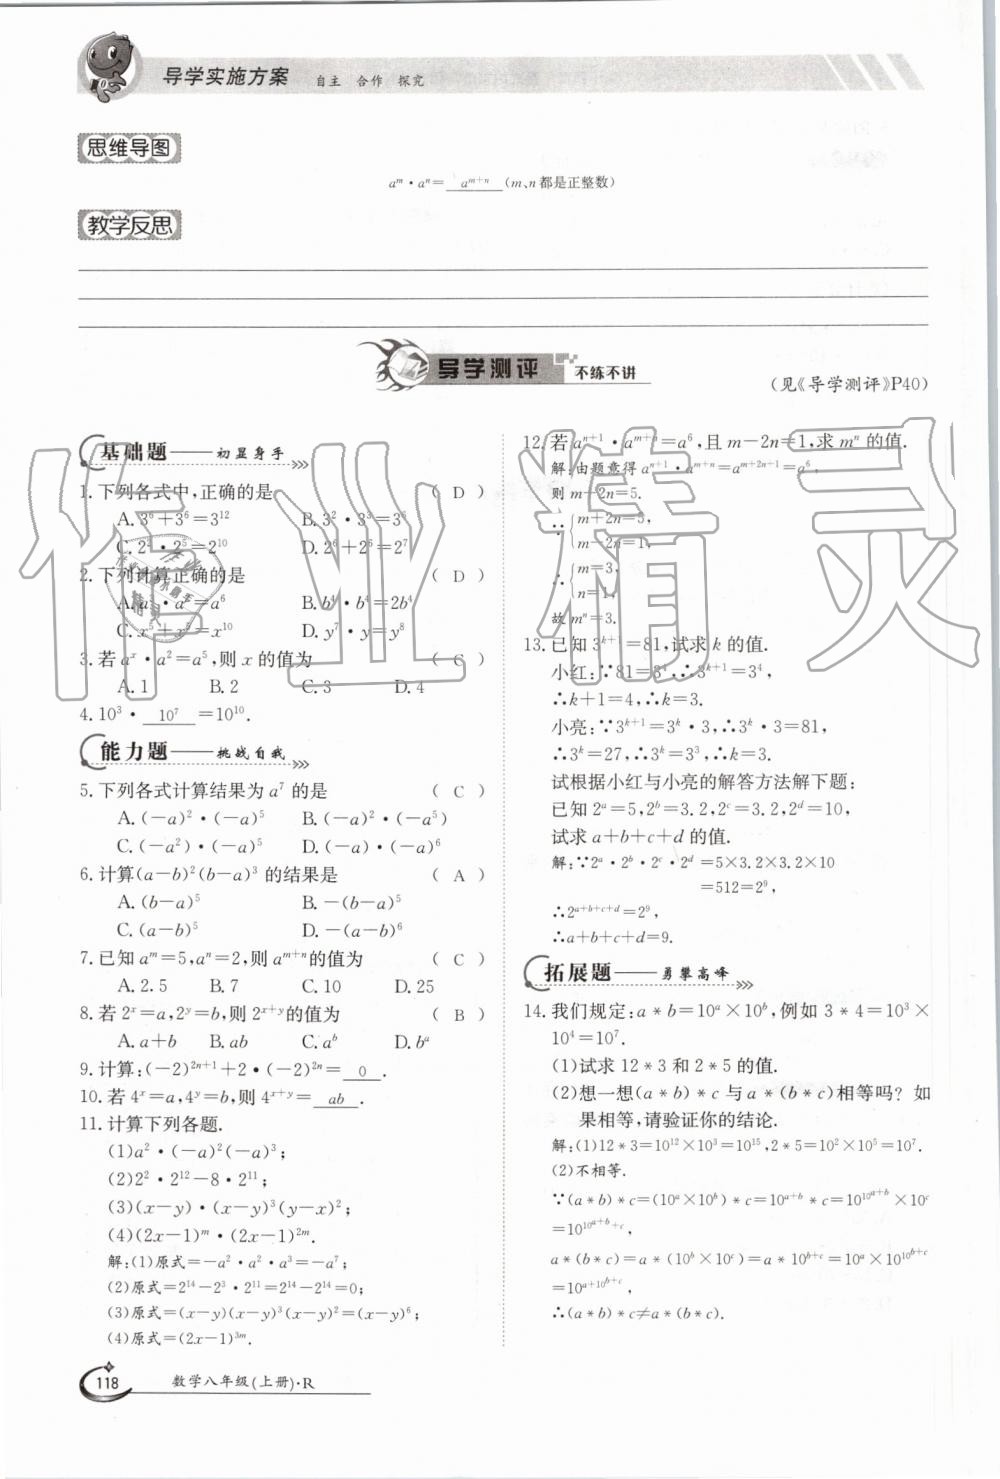 导学实施方案 自主 合作 探究
思维导图
aᵐ·aⁿ= aᵐ⁺ⁿ (m、n都是正整数)
教学反思
导学测评 不练不讲
(见《导学测评》P40)
基础题——初显身手
1.下列各式中,正确的是 ( D )
A.3⁶+3⁶=3¹² B.3²·3³=3⁶
C.2⁵·2⁵=2¹⁰ D.2⁶+2⁶=2⁷
2.下列计算正确的是 ( D )
B.b⁴·b⁴=2b⁴
C.x⁵+x⁵=x¹⁰ D.y⁷·y=y⁸
3.若aˣ·a²=a⁵,则x的值为 ( C )
A.1 B.2 C.3 D.4
4.10³· 10⁷ =10¹⁰.
能力题——挑战自我
5.下列各式计算结果为a⁷的是 ( C )
A.(-a)²·(-a)⁵ B.(-a)²·(-a⁵)
C.(-a²)·(-a)⁵ D.(-a)·(-a)⁶
6.计算(a-b)²(b-a)³的结果是 ( A )
A.(b-a)⁵ B.-(b-a)⁵
C.(a-b)⁵ D.-(a-b)⁶
7.已知aᵐ=5,aⁿ=2,则aᵐ⁺ⁿ的值为 ( C )
A.2.5 B.7 C.10 D.25
8.若2ˣ=a,2ʸ=b,则2ˣ⁺ʸ的值为 ( B )
A.a+b B.ab C.aᵇ D.bᵃ
9.计算:(-2)²ⁿ⁺¹+2·(-2)²ⁿ= 0 .
10.若4ˣ=a,4ʸ=b,则4ˣ⁺ʸ= ab .
11.计算下列各题.
(1)a²·(-a)²(-a)³;
(2)2²·2¹²-8·2¹¹;
(3)(x-y)·(x-y)³(y-x)²;
(4)(2x-1)ᵐ·(2x-1)²ᵐ.
解:(1)原式=-a²·a²·a³=-a⁷;
(2)原式=2¹⁴-2³·2¹¹=2¹⁴-2¹⁴=0;
(3)原式=(x-y)(x-y)³(x-y)²=(x-y)⁶;
(4)原式=(2x-1)³ᵐ.
12.若aⁿ⁺¹·aᵐ⁺ⁿ=a⁶,且m-2n=1,求mⁿ的值.
解:由题意得aⁿ⁺¹·aᵐ⁺ⁿ=aᵐ⁺²ⁿ⁺¹=a⁶,
则m+2n=5.
∴{m+2n=5,
m-2n=1,
∴{m=3,
n=1,
故mⁿ=3.
13.已知3ᵏ⁺¹=81,试求k的值.
小红:∵81=3⁴,∴3ᵏ⁺¹=3⁴,
∴k+1=4,∴k=3.
小亮:∵3ᵏ⁺¹=3ᵏ·3,∴3ᵏ·3=81,
∴3ᵏ=27,∴3ᵏ=3³,∴k=3.
试根据小红与小亮的解答方法解下题:
已知2ᵃ=5,2ᵇ=3.2,2ᶜ=3.2,2ᵈ=10,
试求a+b+c+d的值.
解:∵2ᵃ·2ᵇ·2ᶜ·2ᵈ=5×3.2×3.2×10
=512=2⁹,
∴2ᵃ⁺ᵇ⁺ᶜ⁺ᵈ=2⁹,
∴a+b+c+d=9.
拓展题——勇攀高峰
14.我们规定:a*b=10ᵃ×10ᵇ,例如3*4=10³×
10⁴=10⁷.
(1)试求12*3和2*5的值.
(2)想一想(a*b)*c与a*(b*c)相等吗?如
果相等,请验证你的结论.
解:(1)12*3=10¹²×10³=10¹⁵,2*5=10²×10⁵=10⁷.
(2)不相等.
∵(a*b)*c=(10ᵃ×10ᵇ)*c=10ᵃ⁺ᵇ*c=10^(10ᵃ⁺ᵇ)×10ᶜ
=10^(10ᵃ⁺ᵇ+c),
a*(b*c)=a*(10ᵇ×10ᶜ)=a*10ᵇ⁺ᶜ=10ᵃ×10^(10ᵇ⁺ᶜ)
=10^(a+10ᵇ⁺ᶜ),
∴(a*b)*c≠a*(b*c).
118 数学八年级(上册)·R
作业精灵